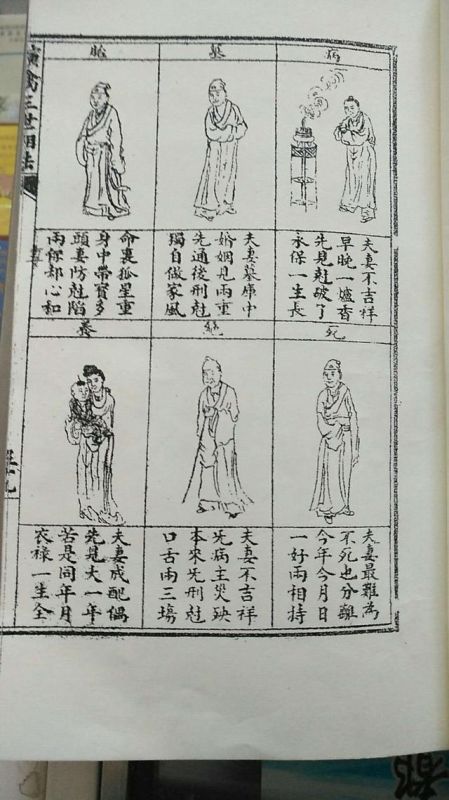 病
夫妻不吉祥
早晚一爐香
先見尅破了
永保一生長
墓
夫妻墓庫中
婚姻見兩重
先通後刑尅
獨自做家風
胎
命裏孤星重
身中帶寶多
頭妻防尅陷
兩你却心和
死
夫妻最難為
不死也分離
今年今月日
一好兩相持
絕
夫妻不吉祥
先病主災殃
本來先刑尅
口舌兩三場
養
夫妻成配偶
先見大一年
若是同年月
衣祿一生全
三世相法